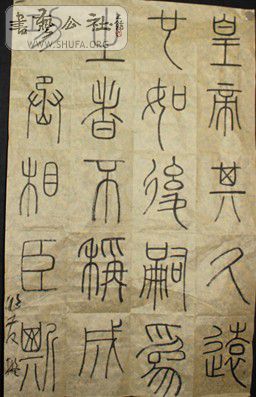 皇帝其久遠
也如後嗣為
之者不稱成
丞相臣斯
書藝公社
WWW.SHUFA.ORG